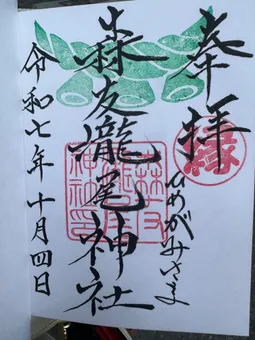 奉拝
縁
ひめがみさま
森友龍尾神社
令和七年十月四日